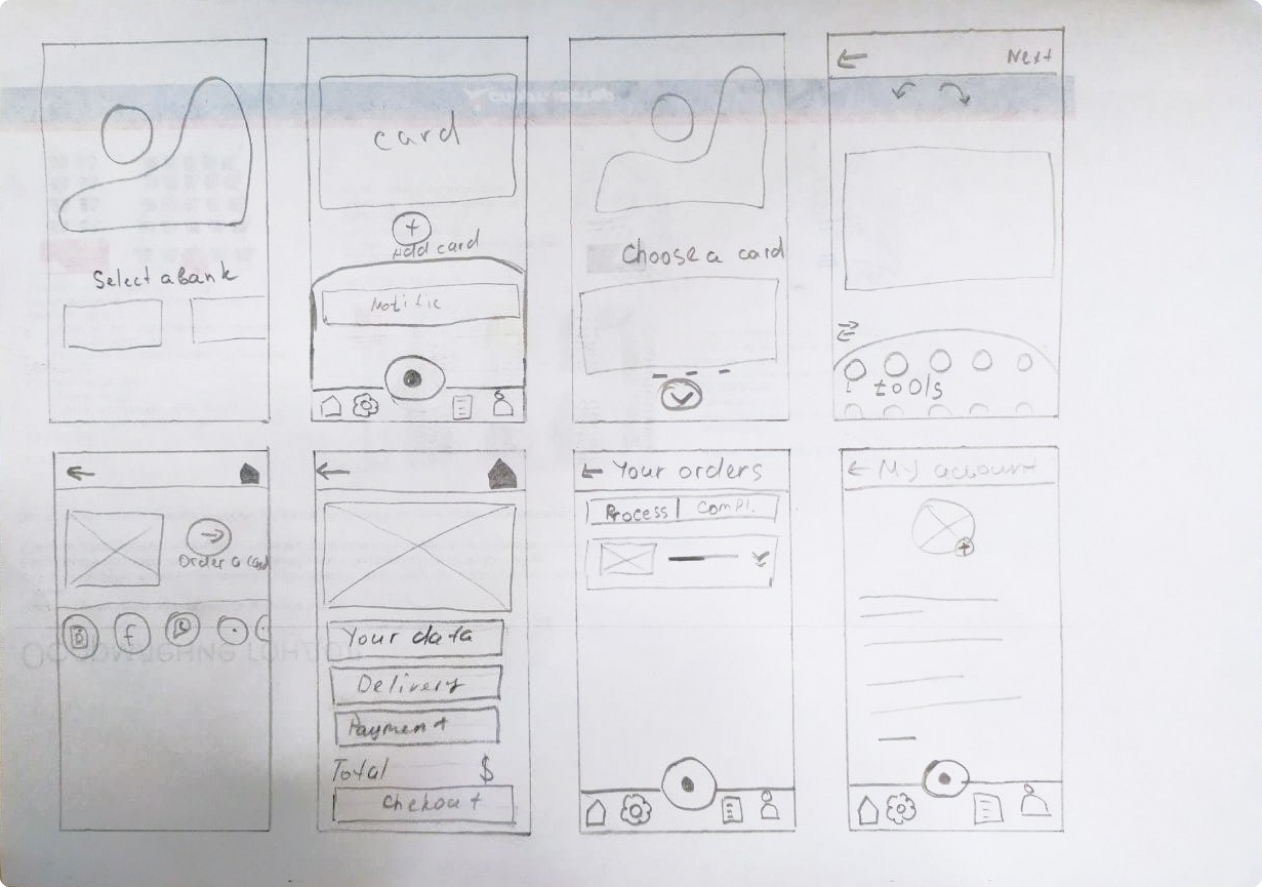 Select a bank
card
Add card
Notific
Choose a card
Next
tools
Order a card
Your data
Delivery
Payment
Total $
Chekout
Your orders
Process Compl.
My account